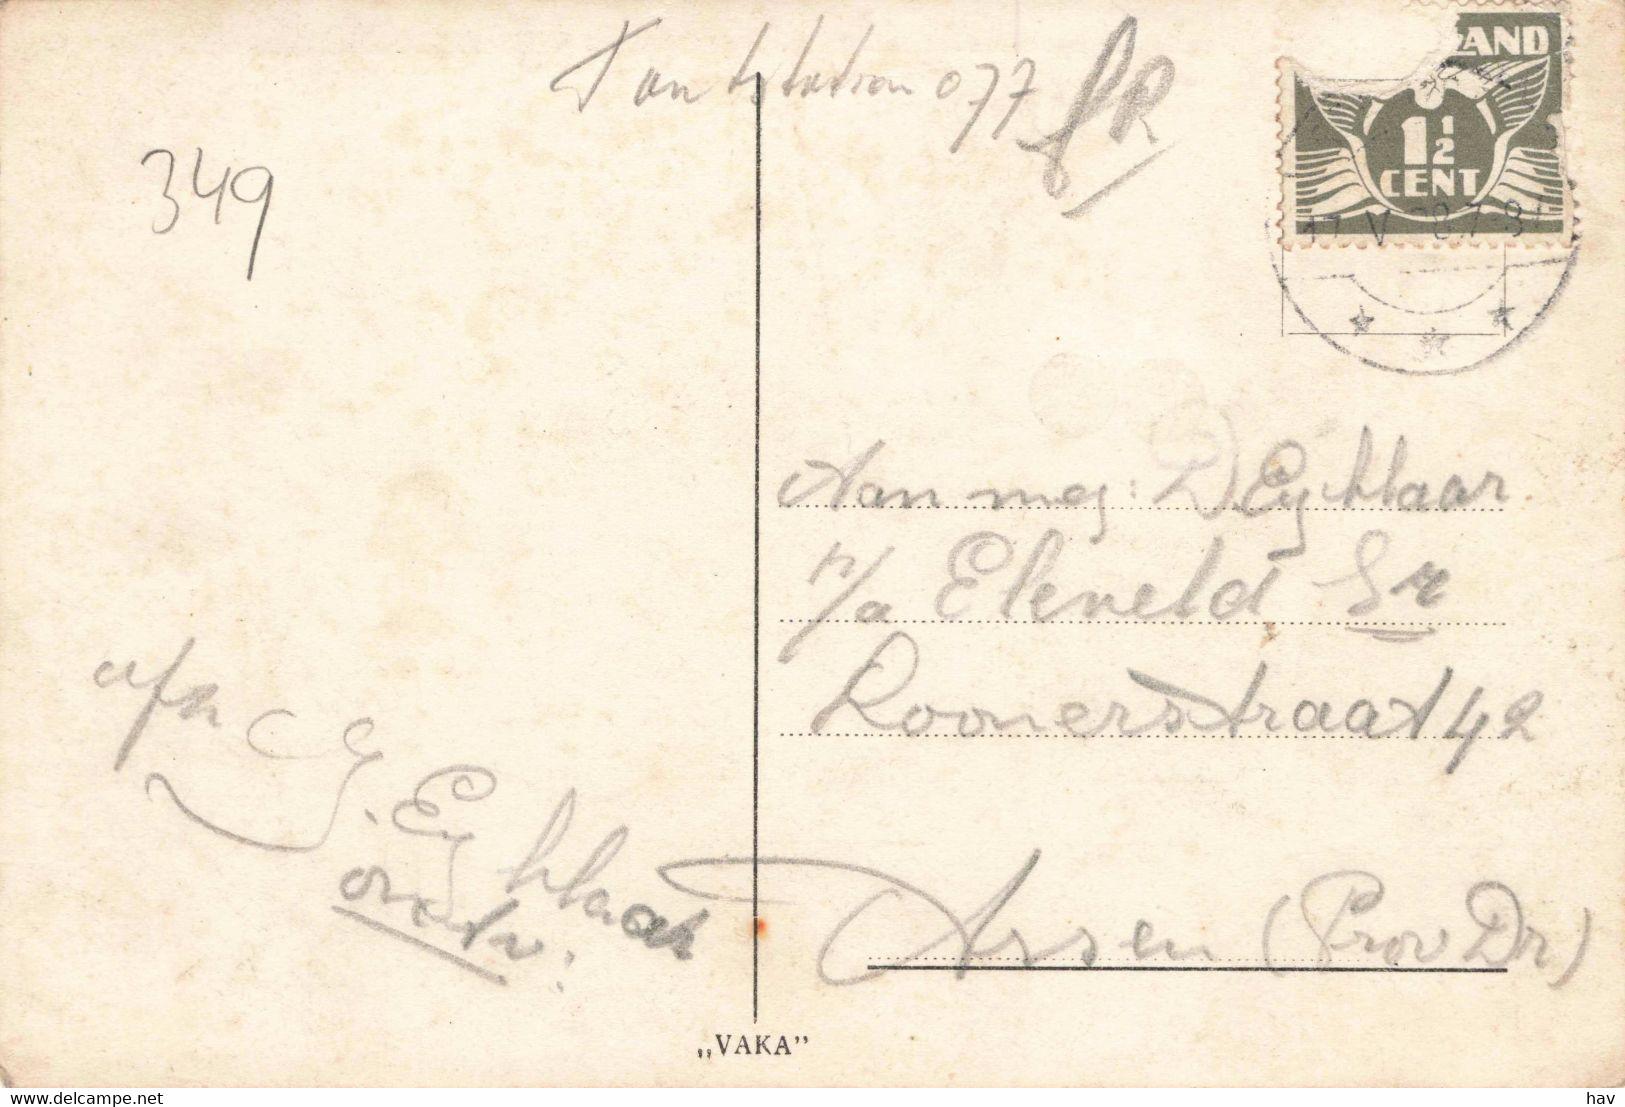 Tankstation 077
349
LAND
1½
CENT
Aan mej: D. Eykelaar
p/a Eleveld Sr
Roonerstraat 42
Assen (Prov Dr)
afz
G. Eykelaar
„VAKA”
www.delcampe.net
hav